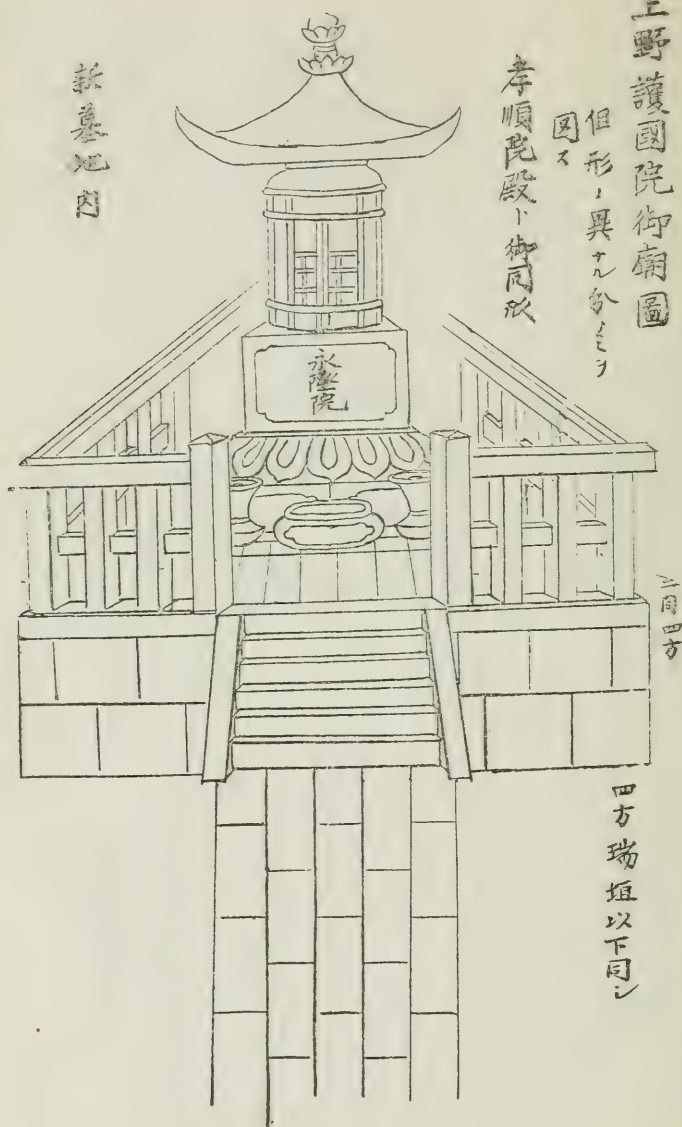 上野護國院御廟圖
但形ノ異ナル分ノミヲ
図ス
孝順院殿ト御同所
新墓地内
永隆院
三間四方
四方瑞垣以下同シ